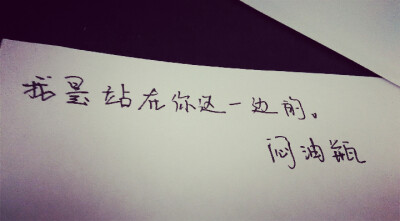 我是站在你这一边的。
闷油瓶